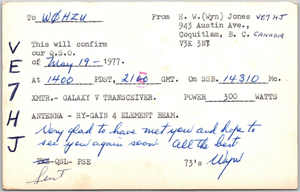 To WØHZU From H. W.(Wyn) Jones VE7HJ
943 Austin Ave.,
Coquitlam, B. C. CANADA
V3K 3N7
This will confirm
our Q.S.O.
of May 19 - 1977.
At 1400 PDST, 2100 GMT. On SSB. 14310 Mc.
XMTR.- GALAXY V TRANSCEIVER. POWER 300 WATTS
ANTENNA - HY-GAIN 4 ELEMENT BEAM.
Very glad to have met you and hope to
see you again soon. All the best
QSL- PSE 73's Wyn
Sent
VE7HJ